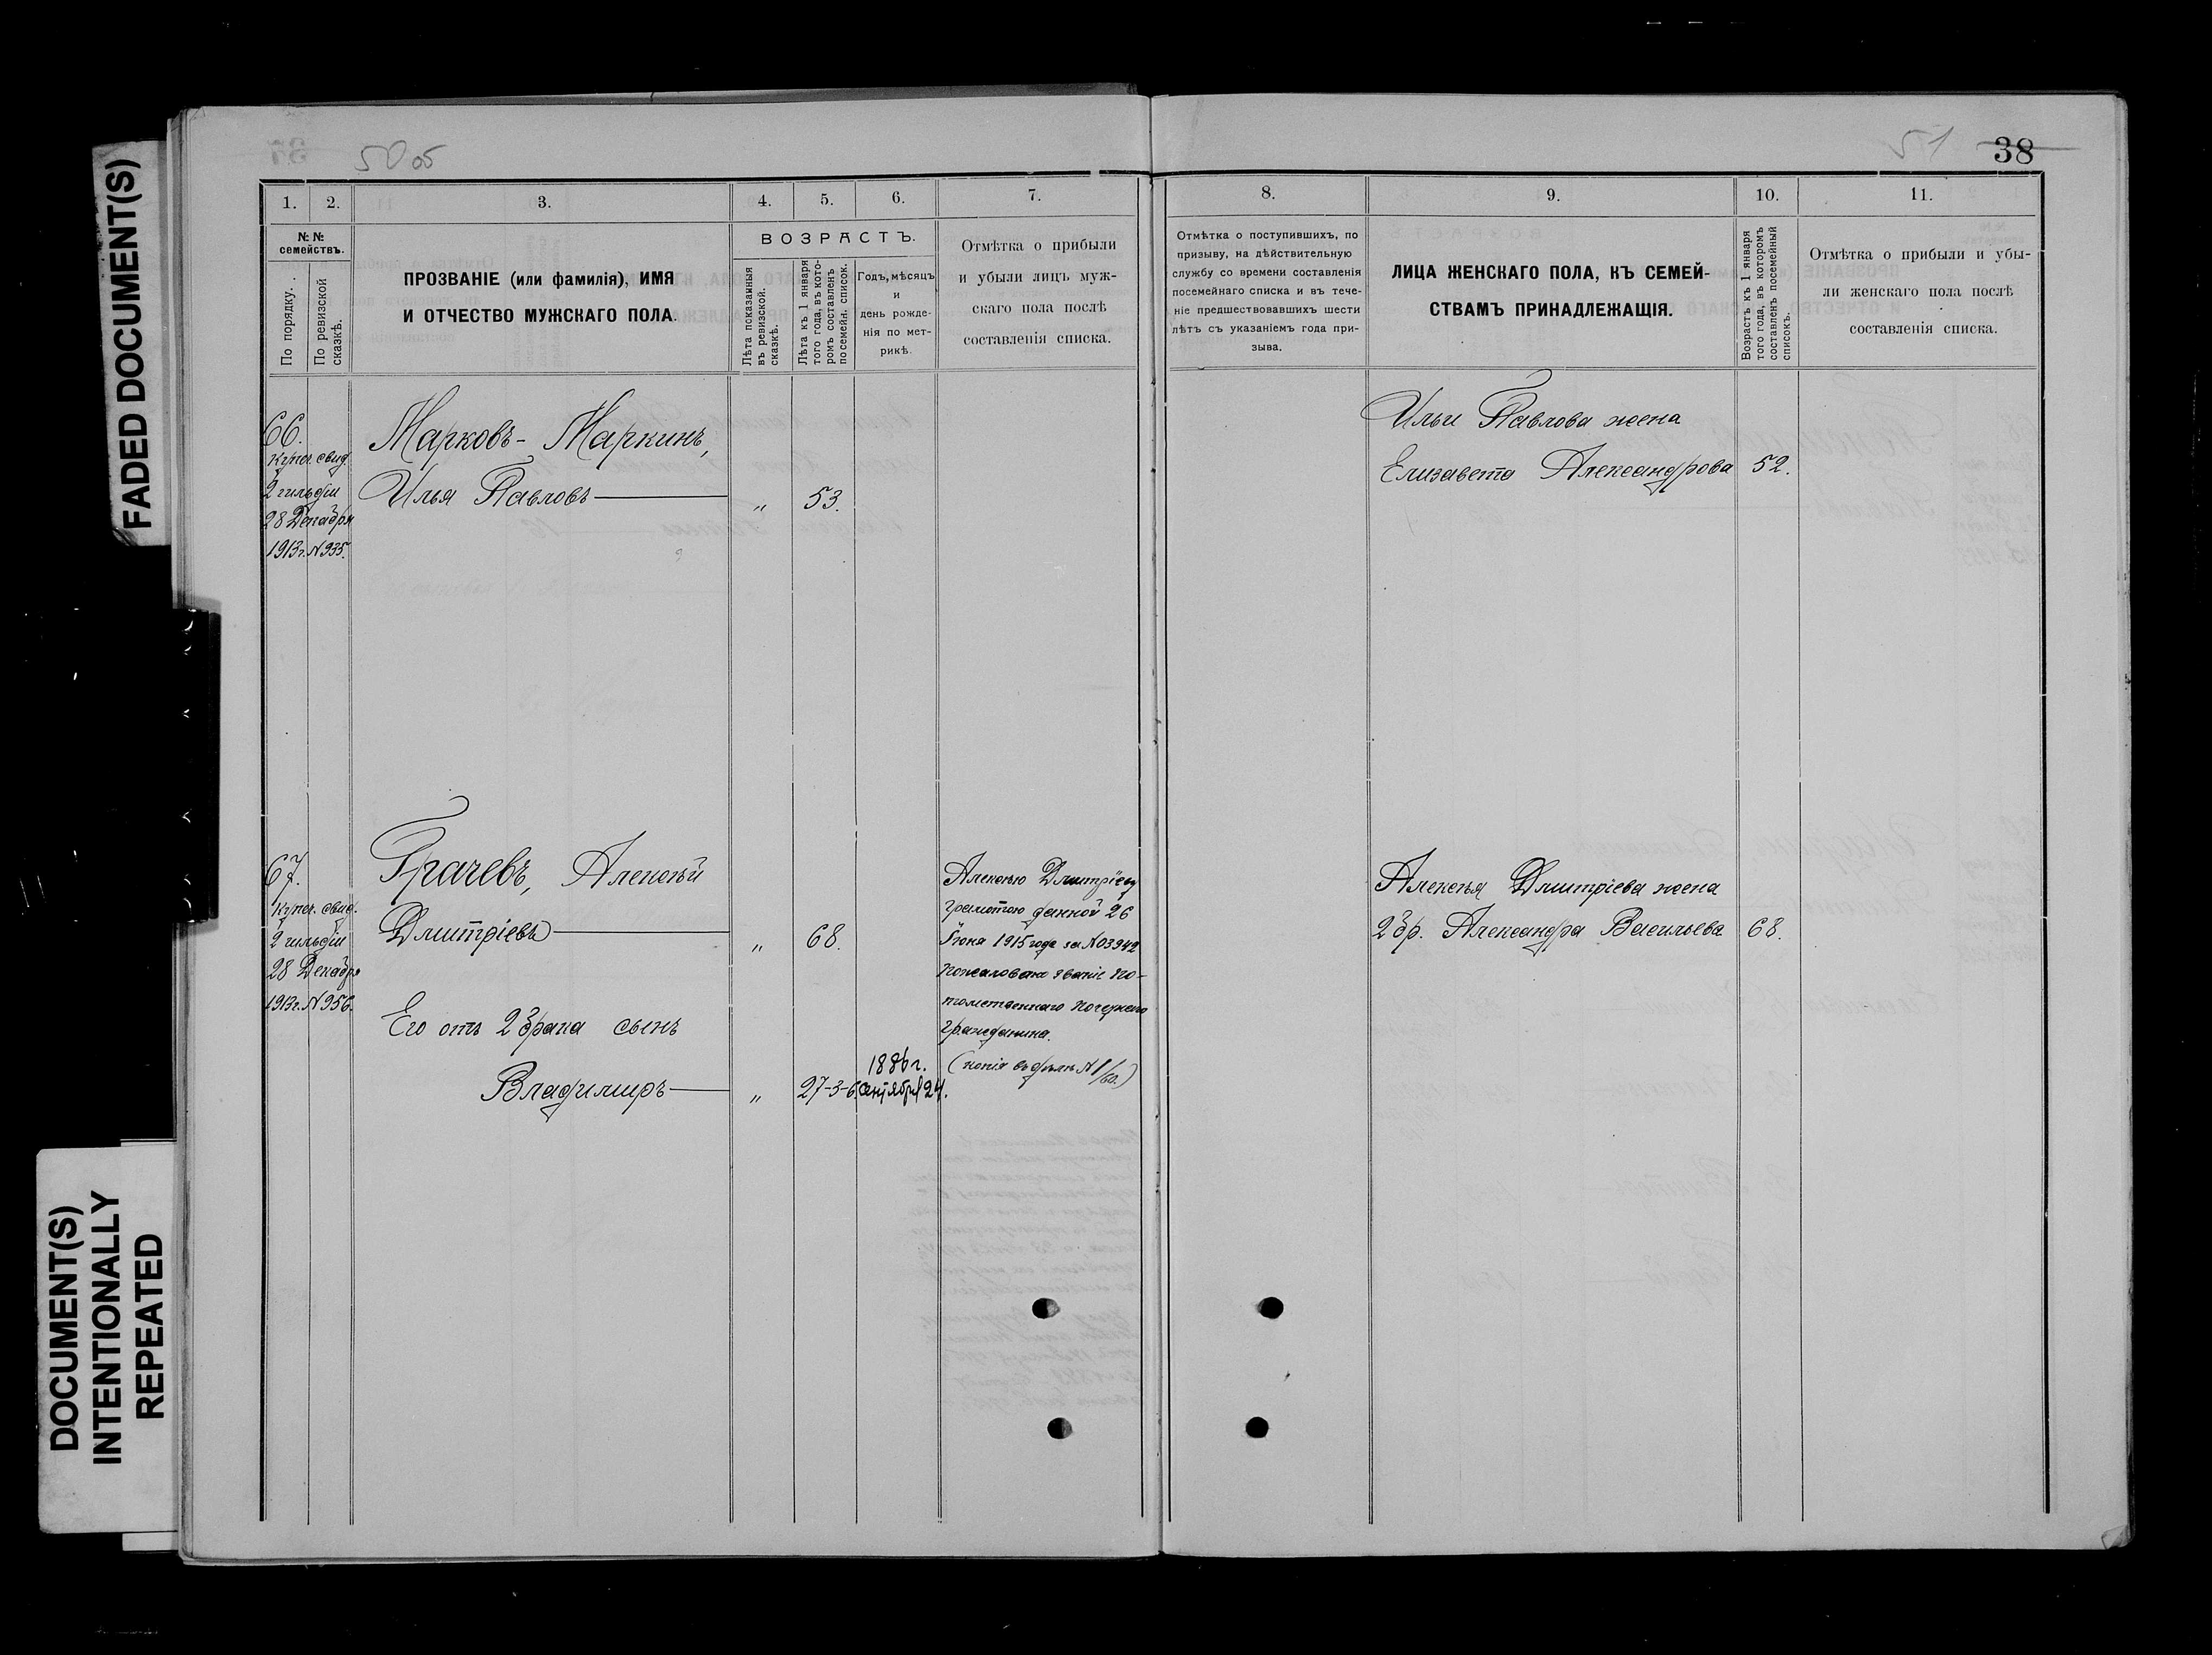 FADED DOCUMENT(S)
DOCUMENT(S)
INTENTIONALLY
REPEATED
50 об
1.
2.
3.
4.
5.
6.
7.
№ №
семействъ.
По порядку.
По ревизской
сказкѣ.
ПРОЗВАНІЕ (или фамилія), ИМЯ
И ОТЧЕСТВО МУЖСКАГО ПОЛА.
ВОЗРАСТЪ.
Лѣта показанныя
въ ревизской.
сказкѣ.
Лѣта къ 1 января
того года, въ кото-
ромъ составленъ
посемейн. список.
Годъ, мѣсяцъ
и
день рожде-
нія по мет-
рикѣ.
Отмѣтка о прибыли
и убыли лицъ муж-
скаго пола послѣ
составленія списка.
66.
Купеч. свид.
2 гильдіи
28 Декабря
1913г. № 935.
Марковъ - Маркинъ,
Илья Павловъ
„
53.
67.
Купеч. свид.
2 гильдіи
28 Декабря
1913г. № 956.
Грачевъ, Алексѣй
Дмитріевъ
„
68.
Его отъ 2 брака сынъ
Владимиръ
„
27-3-6
1886 г.
Сентября 24.
Алексѣю Дмитріеву
грамотою данной 26
Іюня 1915 года за № 3942
пожаловано званіе по-
томственнаго почетнаго
гражданина.
(копія въ дѣлѣ № 1/60.)
51
38
8.
9.
10.
11.
Отмѣтка о поступившихъ, по
призыву, на дѣйствительную
службу со времени составленія
посемейнаго списка и въ тече-
ніе предшествовавшихъ шести
лѣтъ съ указаніемъ года при-
зыва.
ЛИЦА ЖЕНСКАГО ПОЛА, КЪ СЕМЕЙ-
СТВАМЪ ПРИНАДЛЕЖАЩІЯ.
Возрастъ къ 1 января
того года, въ которомъ
составленъ посемейный
списокъ.
Отмѣтка о прибыли и убы-
ли женскаго пола послѣ
составленія списка.
Ильи Павлова жена
Елизавета Александрова 52.
Алексѣя Дмитріева жена
2 бр. Александра Васильева 68.